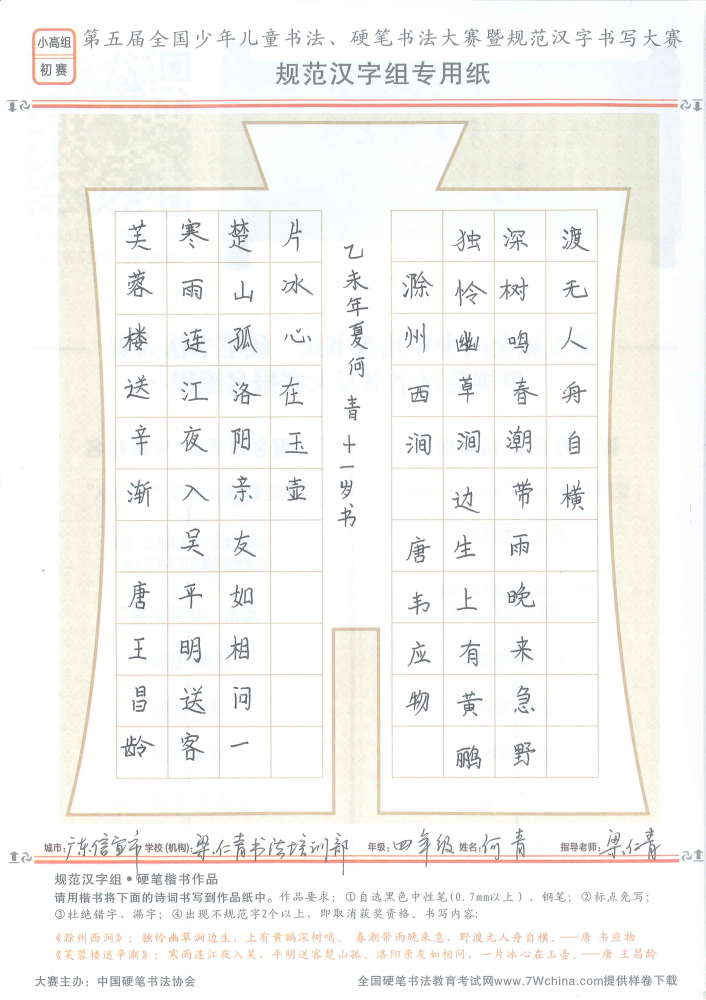 小高组
初赛
第五届全国少年儿童书法、硬笔书法大赛暨规范汉字书写大赛
规范汉字组专用纸
芙蓉楼送辛渐 唐王昌龄
寒雨连江夜入吴平明送客
楚山孤洛阳亲友如相问一
片冰心在玉壶
乙未年夏何青十一岁书
滁州西涧 唐韦应物
独怜幽草涧边生上有黄鹂
深树鸣春潮带雨晚来急野
渡无人舟自横
城市:广东信宜市 学校(机构):梁仁青书法培训部 年级:四年级 姓名:何青 指导老师:梁仁青
规范汉字组•硬笔楷书作品
请用楷书将下面的诗词书写到作品纸中。作品要求：①自选黑色中性笔(0.7mm以上)、钢笔；②标点免写；
③杜绝错字、漏字；④出现不规范字2个以上，即取消获奖资格。书写内容:
《滁州西涧》：独怜幽草涧边生，上有黄鹂深树鸣。春潮带雨晚来急，野渡无人舟自横。——唐 韦应物
《芙蓉楼送辛渐》：寒雨连江夜入吴，平明送客楚山孤。洛阳亲友如相问，一片冰心在玉壶。——唐 王昌龄
大赛主办：中国硬笔书法协会 全国硬笔书法教育考试网www.7Wchina.com提供样卷下载